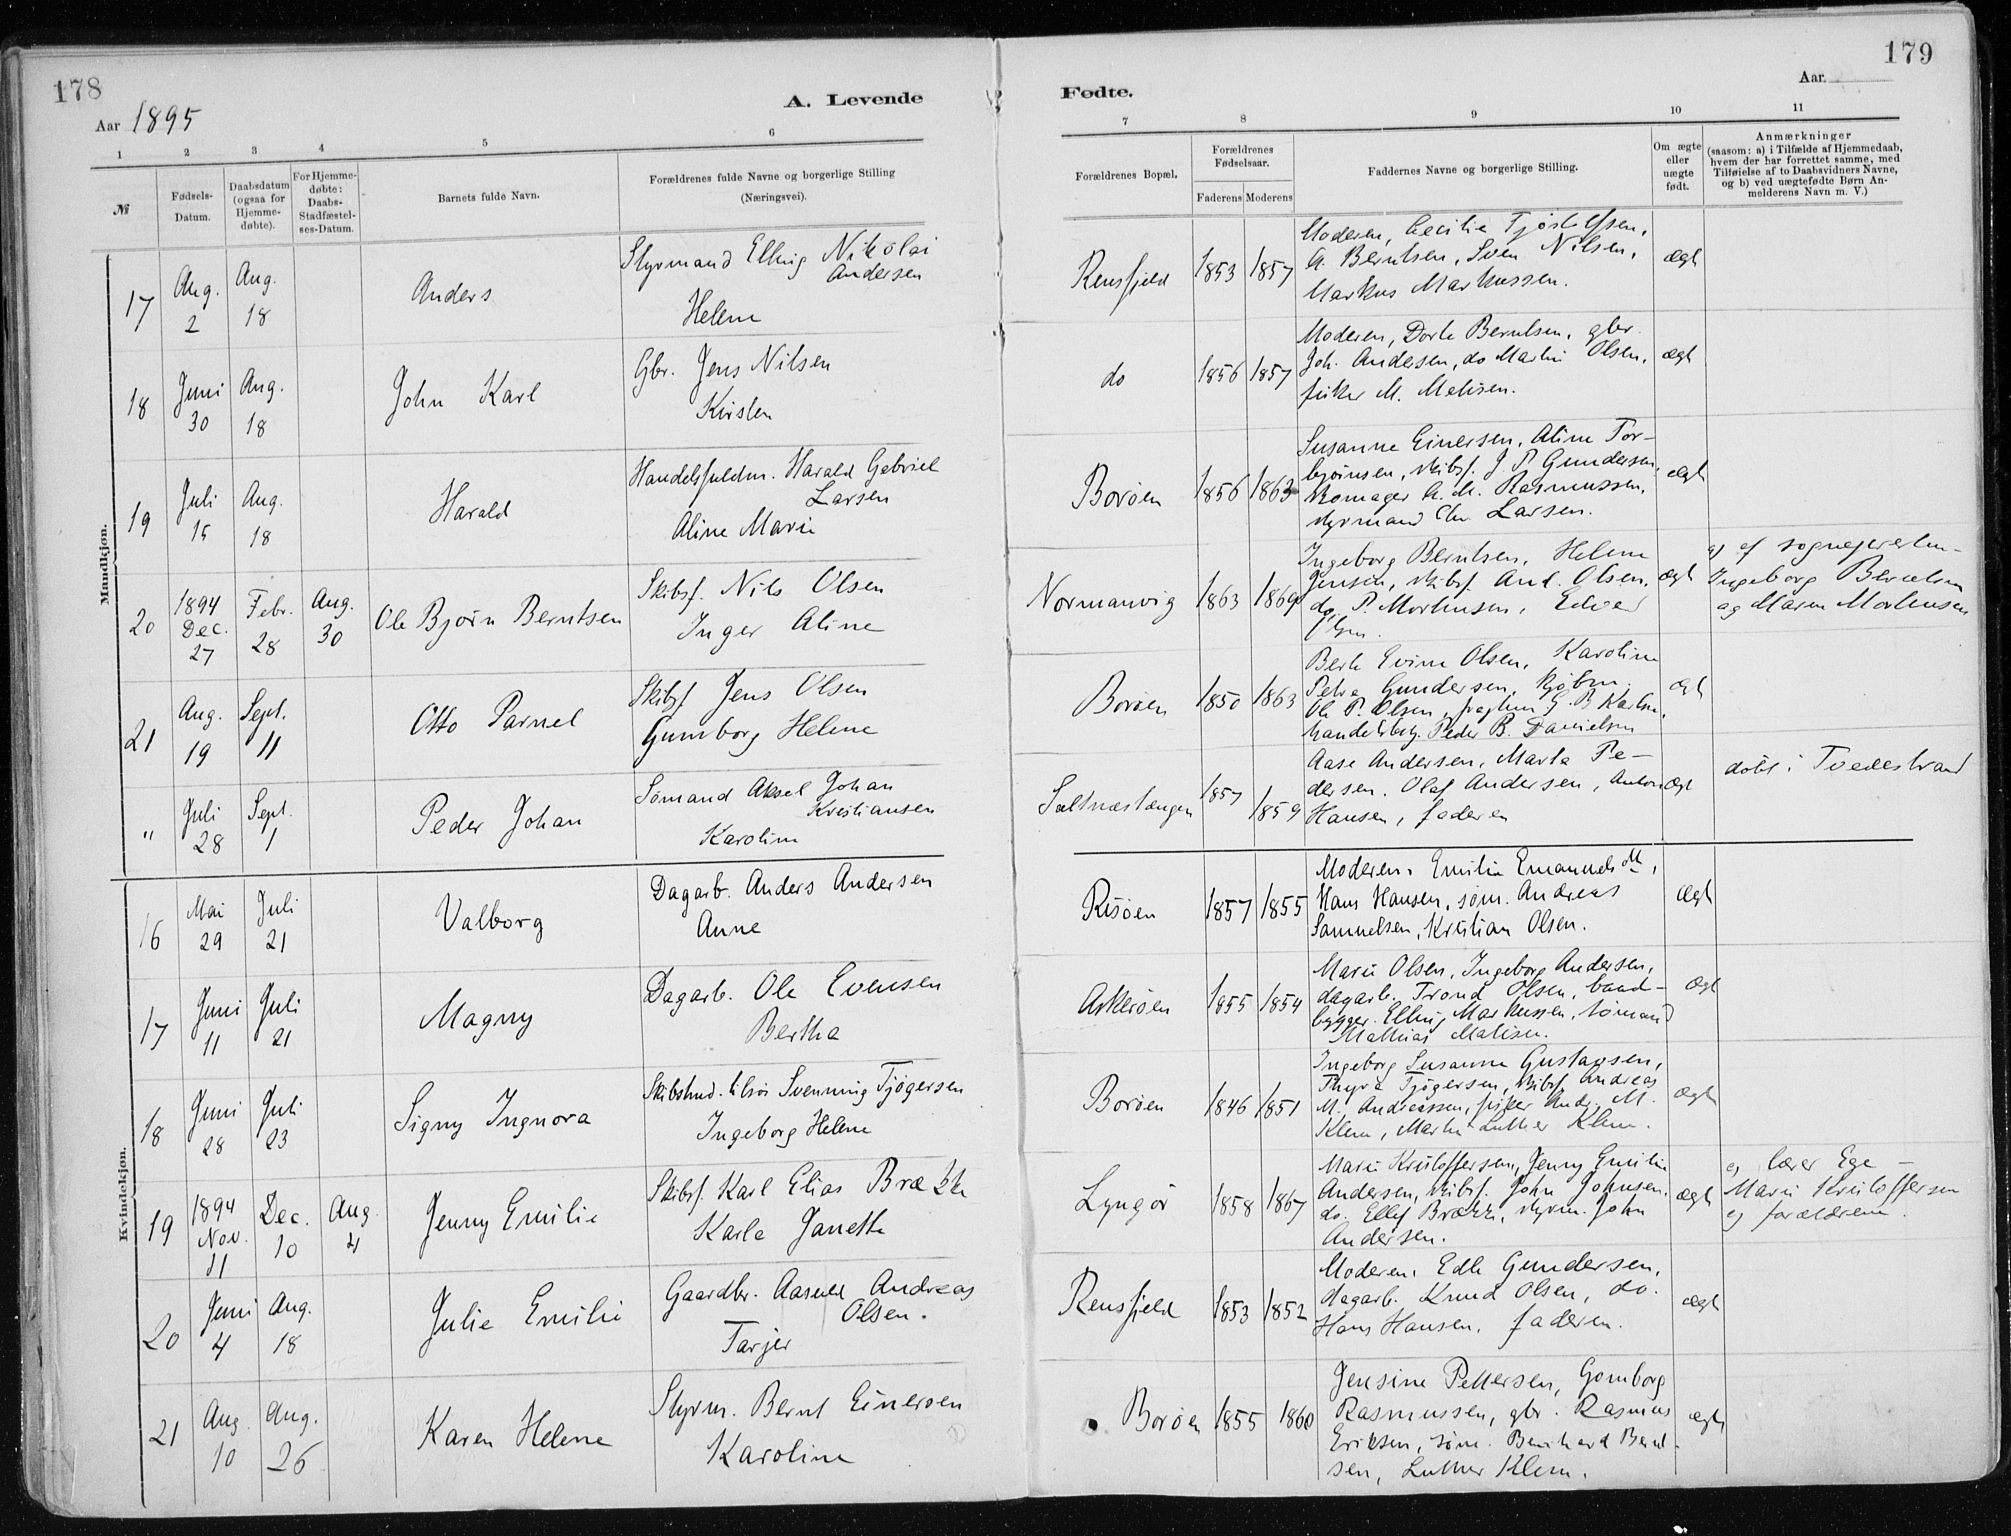 178
179
Aar 1895
A. Levende
Fødte.
Aar
1 2 3 4 5 6
7 8 9 10 11
№
Fødsels-
Datum.
Daabsdatum
(ogsaa for
Hjemme-
døbte).
For Hjemme-
døbte:
Daabs-
Stadfæstel-
ses-Datum.
Barnets fulde Navn.
Forældrenes fulde Navne og borgerlige Stilling
(Næringsvei).
Forældrenes Bopæl.
Forældrenes
Fødselsaar.
Faderens Moderens
Faddernes Navne og borgerlige Stilling.
Om ægte
eller
uægte
født.
Anmærkninger
(saasom: a) i Tilfælde af Hjemmedaab,
hvem der har forrettet samme, med
Tilføielse af to Daabsvidners Navne,
og b) ved uægtefødte Børn An-
melderens Navn m. V.)
Mandkjøn.
17
Aug.
2
Aug.
18
Anders
Styrmand Elling Nikolai
Andersen
Helene
Rensfjeld
1853 1857
Moderen, Cecilie Tjøstolfsen,
A. Berntsen, Sven Nilsen,
Markus Markussen.
ægt
18
Juni
30
Aug.
18
John Karl
Gbr. Jens Nilsen
Kirsten
do
1856 1857
Moderen, Dorte Berntsen, gbr.
Joh. Andersen, do Martin Olsen,
fisker M. Matisen.
ægt
19
Juli
15
Aug.
18
Harald
Handelsfuldm. Harald Gabriel
Larsen
Aline Marie
Borøen
1856 1863
Susanne Einersen, Aline Tor-
bjørnsen, skibsf. J. P. Gundersen,
skomager A. M. Rasmussen,
styrmand Chr. Larsen.
ægt
20
1894
Dec.
27
Febr.
28
Aug.
30
Ole Bjørn Berntsen
Skibsf. Nils Olsen
Inger Aline
Normanvig
1863 1869
Ingeborg Berntsen, Helene
Jensen, skibsf. And. Olsen,
do P. Mortensen, Edvard
Olsen.
ægt
a) af
Ingeborg Berntsen
og Maren Mortensen
21
Aug.
19
Sept.
11
Otto Parnel
Skibsf Jens Olsen
Gunborg Helene
Borøen
1850 1863
Berte Evine Olsen, Karoline
Petra Gundersen, kjøbm.
Ole P. Olsen, G. B. Karlsen,
handelsbetj. Peder B. Danielsen
ægt
"
Juli
28
Sept.
1
Peder Johan
Sømand Aksel Johan
Kristiansen
Karoline
Saltnæstangen
1857
1859
Aase Andersen, Marta Pe-
dersen. Olaf Andersen, Anton
Hansen, faderen
ægt
døbt i Tvedestrand
Kvindekjøn.
16
Mai
29
Juli
21
Valborg
Dagarb. Anders Andersen
Anne
Risøen
1857 1855
Moderen, Emilie Emanuelsdtt,
Hans Hansen, søm. Andreas
Samuelsen, Kristian Olsen.
ægt
17
Juni
11
Juli
21
Magny
Dagarb. Ole Evensen
Bertha
Askerøen
1855 1854
Marie Olsen, Ingeborg Andersen,
dagarb. Trond Olsen, baad-
bygger Elling Markussen, sømand
Mathias Matisen.
ægt
18
Juni
28
Juli
23
Signy Ingnora
Skibstmd. Svenning Tjøgersen
Ingeborg Helene
Borøen
1846 1851
Ingeborg Susanne Gustavsen,
Thyra Tjøgersen, skibsf. Andreas
M. Andreassen, fisker Andr. M.
Klem, Martin Luther Klem.
ægt
19
1894
Nov.
11
Dec.
10
Aug.
4
Jenny Emilie
Skibsf. Karl Elias Brække
Karle Janette
Lyngør
1858 1867
Marie Kristoffersen, Jenny Emilie
Andersen, skibsf. John Johnsen,
do. Ellef Brække, styrm. John
Andersen.
ægt
a, lærer Ege -
Marie Kristoffersen
og forældrene.
20
Juni
4
Aug.
18
Julie Emilie
Gaardbr. Aasuld Andreas
Olsen.
Tarjer
Rensfjeld
1853 1852
Moderen, Edle Gundersen,
dagarb. Knud Olsen, do.
Hans Hansen, faderen.
ægt
21
Aug
10
Aug.
26
Karen Helene
Styrm. Bernt Einersen
Karoline
Borøen
1855 1860
Jensine Pettersen, Gomborg
Rasmussen, gbr. Rasmus
Eriksen, søm. Bernhard Bernt-
sen, Luther Klem.
ægte